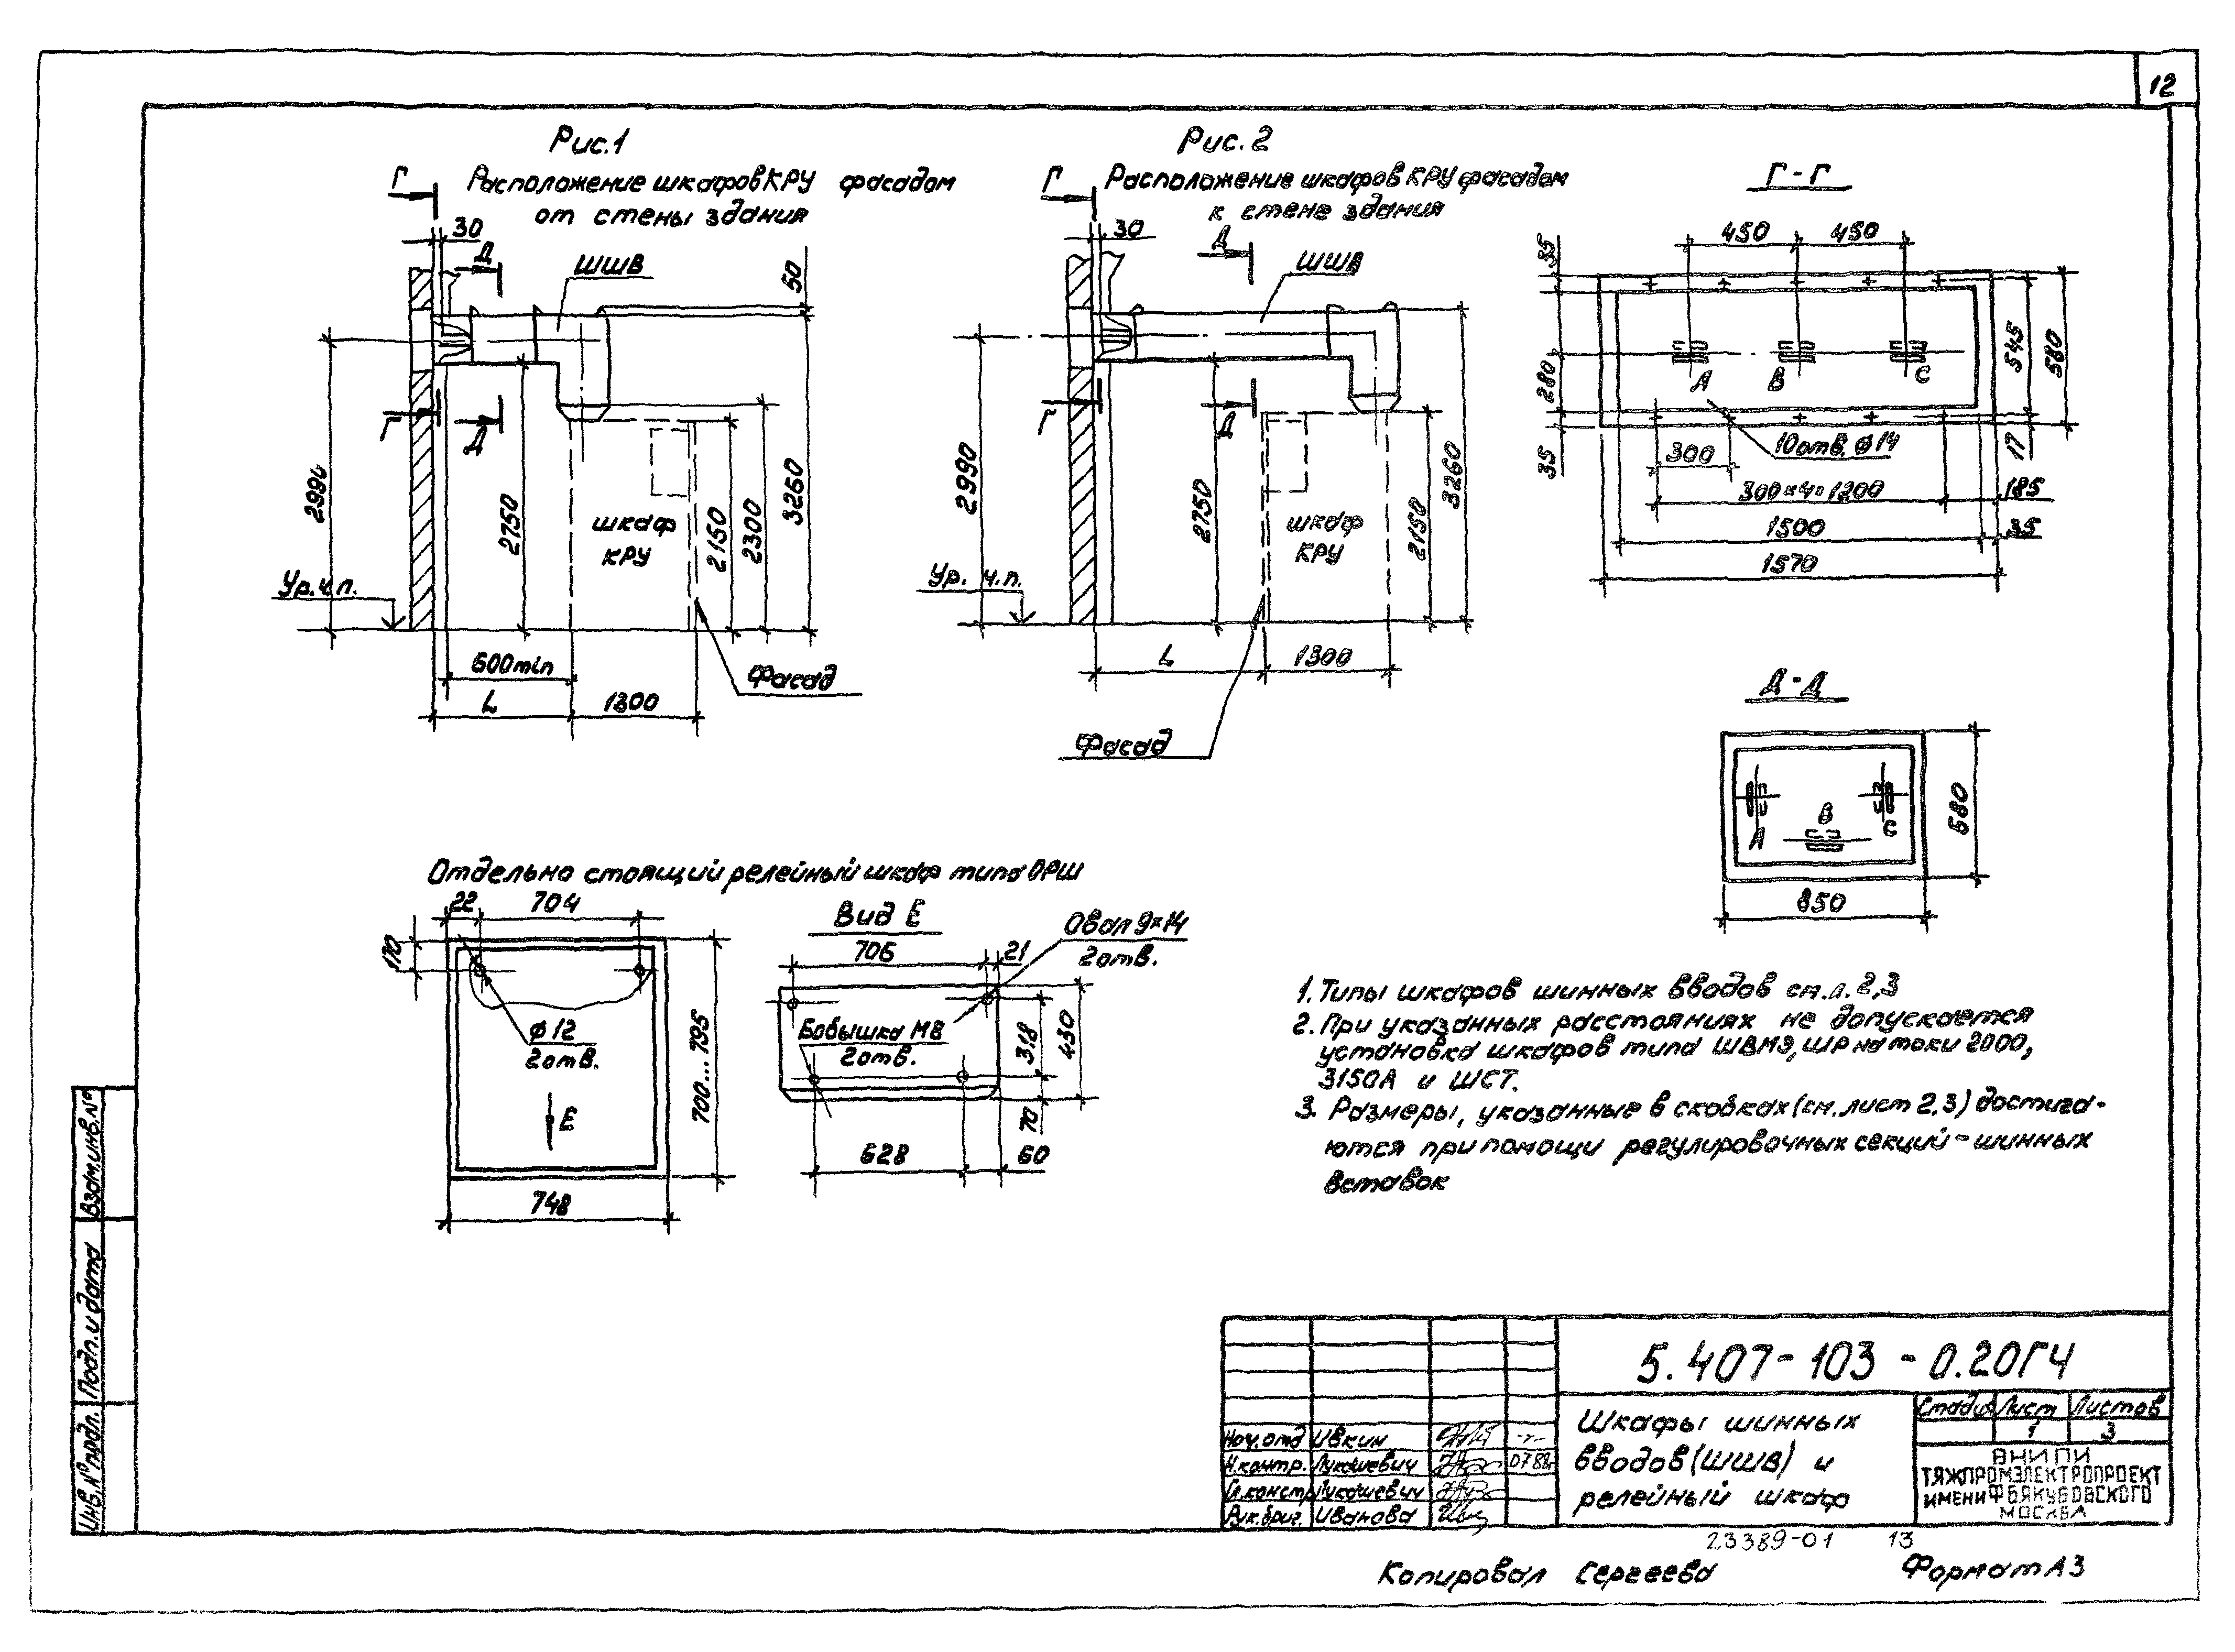 12
Рис.1
Расположение шкафов КРУ фасадом
от стены здания
Г
30
Д
ШШВ
50
Г
Д
2750
шкаф
КРУ
2150
2300
3260
Ур.ч.п.
600min
L
1300
Фасад
Рис. 2
Расположение шкафов КРУ фасадом
к стене здания
Г
30
Д
ШШВ
Г
Д
2990
2750
шкаф
КРУ
2150
3260
Ур. ч.п.
L
1300
Фасад
Г-Г
450
450
35
280
35
А
В
С
545
580
17
10 отв. ⌀14
300
300×4=1200
185
1500
35
1570
Д-Д
А
В
С
580
850
Отдельно стоящий релейный шкаф типа ОРШ
22
704
170
⌀12
2 отв.
Е
700...795
748
Вид Е
706
21
Овал 9×14
2 отв.
Бобышка М8
2 отв.
318
430
70
628
60
1. Типы шкафов шинных вводов см.л. 2,3
2. При указанных расстояниях не допускается
установка шкафов типа ШВМЭ, ШР на токи 2000,
3150А и ШСТ.
3. Размеры, указанные в скобках (см. лист 2.3) достига-
ются при помощи регулировочных секций-шинных
вставок
5.407-103-0.20ГЧ
Шкафы шинных
вводов (ШШВ) и
релейный шкаф
Стадия Лист Листов
1 3
ВНИПИ
ТЯЖПРОМЭЛЕКТРОПРОЕКТ
ИМЕНИ Ф.Б.ЯКУБОВСКОГО
МОСКВА
Нач.отд Ивкин
Н.контр. Лукашевич 07.88г.
Гл.констр Лукашевич
Рук.бриг. Иванова
Взам.инв.№
Подп. и дата
Инв.№ подл.
23389-01 13
Копировал Сергеева Формат А3